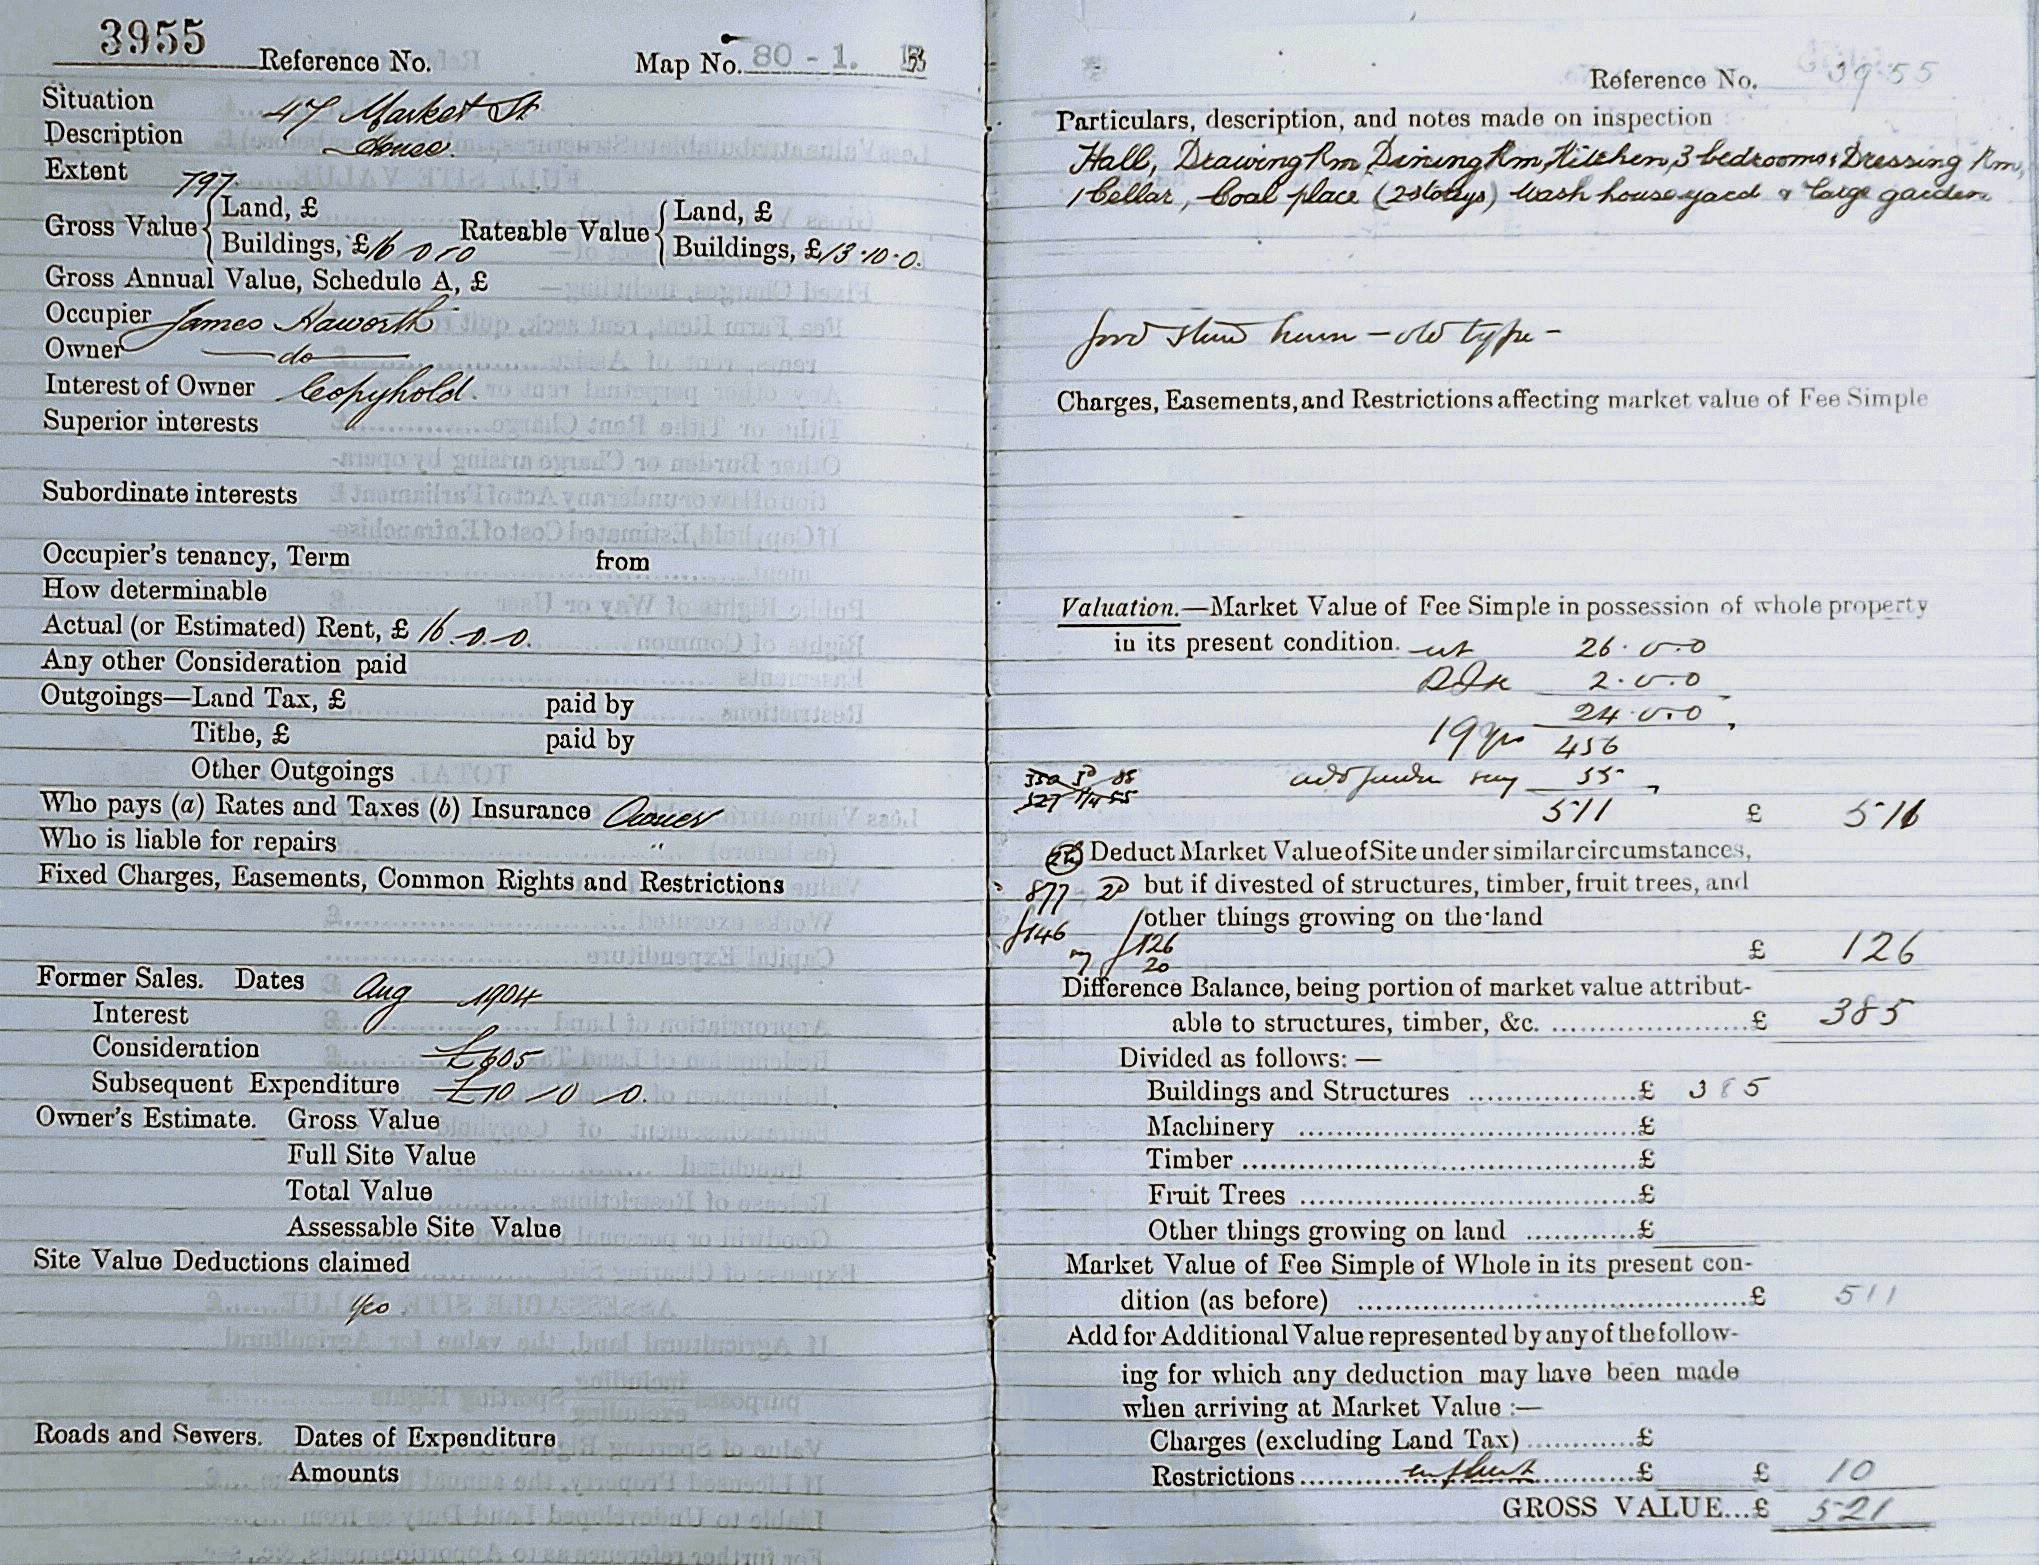 3955 Reference No. Map No. 80 - 1.
Situation 47 Market St
Description House.
Extent 797
Gross Value { Land, £ Rateable Value { Land, £
Buildings, £16 0 0 Buildings, £13.10.0.
Gross Annual Value, Schedule A, £
Occupier James Haworth
Owner — do —
Interest of Owner Copyhold.
Superior interests
Subordinate interests
Occupier's tenancy, Term from
How determinable
Actual (or Estimated) Rent, £ 16.0.0.
Any other Consideration paid
Outgoings—Land Tax, £ paid by
Tithe, £ paid by
Other Outgoings
Who pays (a) Rates and Taxes (b) Insurance Owner
Who is liable for repairs "
Fixed Charges, Easements, Common Rights and Restrictions
Former Sales. Dates Aug 1904
Interest
Consideration £605
Subsequent Expenditure £10 0 0.
Owner's Estimate. Gross Value
Full Site Value
Total Value
Assessable Site Value
Site Value Deductions claimed
Yes.
Roads and Sewers. Dates of Expenditure
Amounts
Reference No. 3955
Particulars, description, and notes made on inspection
Hall, Drawing Rm, Dining Rm, Kitchen, 3 bedrooms, Dressing Rm,
1 Cellar, Coal place (2 storeys) Wash house yard & large garden
old type -
Charges, Easements, and Restrictions affecting market value of Fee Simple
Valuation.—Market Value of Fee Simple in possession of whole property
in its present condition. 26.0.0
2.0.0
24.0.0
19 yrs 456
add garden say 55
511 £ 511
Deduct Market Value of Site under similar circumstances,
877 but if divested of structures, timber, fruit trees, and
other things growing on the land
£146 126
20 £ 126
Difference Balance, being portion of market value attribut-
able to structures, timber, &c. £ 385
Divided as follows: —
Buildings and Structures £ 385
Machinery £
Timber £
Fruit Trees £
Other things growing on land £
Market Value of Fee Simple of Whole in its present con-
dition (as before) £ 511
Add for Additional Value represented by any of the follow-
ing for which any deduction may have been made
when arriving at Market Value :—
Charges (excluding Land Tax) £
Restrictions £ £ 10
GROSS VALUE...£ 521